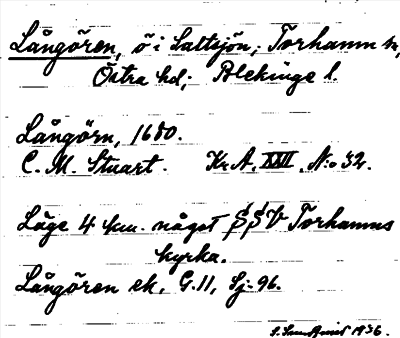 Långören, ö i Saltsjön, Torhamn sn,
Östra hd; Blekinge l.
Långörn, 1680.
C. M. Stuart. Kr. A. XXII, No 32.
Läge 4 km. något SSV Torhamns
kyrka.
Långören ek. G. 11, Sj. 96.
1936.